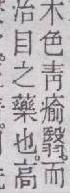 木色靑瘉翳而
治目之藥也高